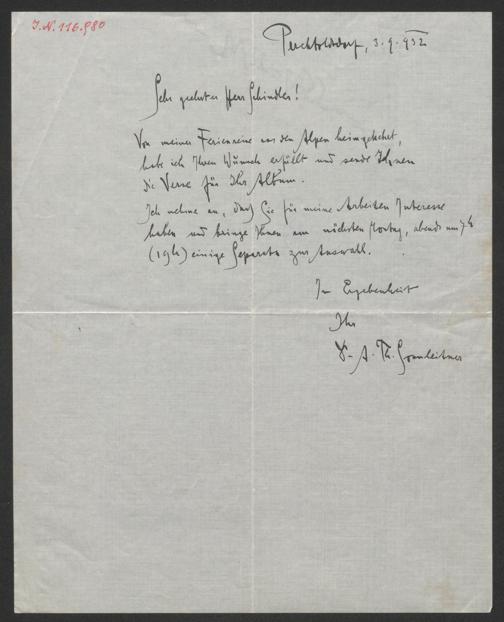 I.N. 116.980
Perchtoldsdorf, 3.9.932
Sehr geehrter Herr Schindler!
Von meiner Ferienreise aus den Alpen heimgekehrt,
habe ich Ihren Wunsch erfüllt und sende Ihnen
die Verse für Ihr Album.
Ich nehme an, daß Sie für meine Arbeiten Interesse
haben und bringe Ihnen am nächsten Montag, abends um 7h
(19h) einige Separata zur Auswahl.
In Ergebenheit
Ihr
Dr. A. Th. Sonnleitner